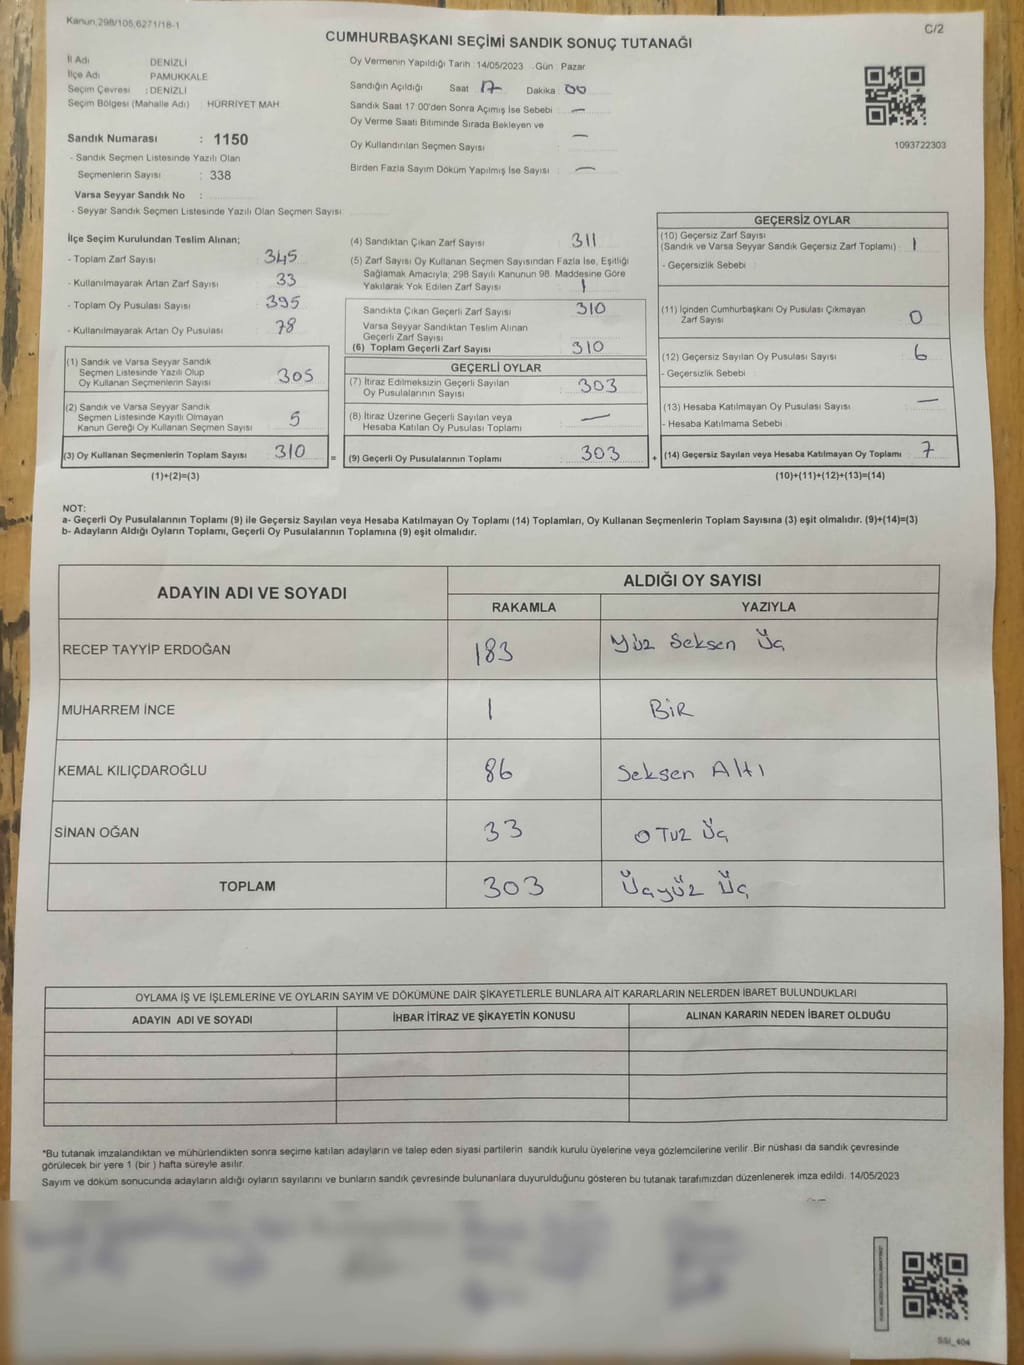 Kanun,298/105,6271/18-1
C/2
CUMHURBAŞKANI SEÇİMİ SANDIK SONUÇ TUTANAĞI
İl Adı DENİZLİ
İlçe Adı PAMUKKALE
Seçim Çevresi : DENİZLİ
Seçim Bölgesi (Mahalle Adı) HÜRRİYET MAH
Sandık Numarası : 1150
- Sandık Seçmen Listesinde Yazılı Olan
Seçmenlerin Sayısı : 338
Varsa Seyyar Sandık No :
- Seyyar Sandık Seçmen Listesinde Yazılı Olan Seçmen Sayısı
Oy Vermenin Yapıldığı Tarih : 14/05/2023 Gün : Pazar
Sandığın Açıldığı Saat 17 Dakika 00
Sandık Saat 17.00'den Sonra Açımış İse Sebebi : —
Oy Verme Saati Bitiminde Sırada Bekleyen ve
Oy Kullandırılan Seçmen Sayısı —
Birden Fazla Sayım Döküm Yapılmış İse Sayısı : —
1093722303
İlçe Seçim Kurulundan Teslim Alınan;
- Toplam Zarf Sayısı 345
- Kullanılmayarak Artan Zarf Sayısı 33
- Toplam Oy Pusulası Sayısı 395
- Kullanılmayarak Artan Oy Pusulası 78
(1) Sandık ve Varsa Seyyar Sandık
Seçmen Listesinde Yazılı Olup
Oy Kullanan Seçmenlerin Sayısı 305
(2) Sandık ve Varsa Seyyar Sandık
Seçmen Listesinde Kayıtlı Olmayan
Kanun Gereği Oy Kullanan Seçmen Sayısı 5
(3) Oy Kullanan Seçmenlerin Toplam Sayısı 310 =
(1)+(2)=(3)
(4) Sandıktan Çıkan Zarf Sayısı 311
(5) Zarf Sayısı Oy Kullanan Seçmen Sayısından Fazla İse, Eşitliği
Sağlamak Amacıyla; 298 Sayılı Kanunun 98. Maddesine Göre
Yakılarak Yok Edilen Zarf Sayısı 1
Sandıkta Çıkan Geçerli Zarf Sayısı 310
Varsa Seyyar Sandıktan Teslim Alınan
Geçerli Zarf Sayısı
(6) Toplam Geçerli Zarf Sayısı 310
GEÇERLİ OYLAR
(7) İtiraz Edilmeksizin Geçerli Sayılan
Oy Pusulalarının Sayısı 303
(8) İtiraz Üzerine Geçerli Sayılan veya
Hesaba Katılan Oy Pusulası Toplamı —
(9) Geçerli Oy Pusulalarının Toplamı 303 +
GEÇERSİZ OYLAR
(10) Geçersiz Zarf Sayısı
(Sandık ve Varsa Seyyar Sandık Geçersiz Zarf Toplamı) 1
- Geçersizlik Sebebi :
(11) İçinden Cumhurbaşkanı Oy Pusulası Çıkmayan
Zarf Sayısı 0
(12) Geçersiz Sayılan Oy Pusulası Sayısı 6
- Geçersizlik Sebebi
(13) Hesaba Katılmayan Oy Pusulası Sayısı —
- Hesaba Katılmama Sebebi
(14) Geçersiz Sayılan veya Hesaba Katılmayan Oy Toplamı 7
(10)+(11)+(12)+(13)=(14)
NOT:
a- Geçerli Oy Pusulalarının Toplamı (9) ile Geçersiz Sayılan veya Hesaba Katılmayan Oy Toplamı (14) Toplamları, Oy Kullanan Seçmenlerin Toplam Sayısına (3) eşit olmalıdır. (9)+(14)=(3)
b- Adayların Aldığı Oyların Toplamı, Geçerli Oy Pusulalarının Toplamına (9) eşit olmalıdır.
ADAYIN ADI VE SOYADI
ALDIĞI OY SAYISI
RAKAMLA YAZIYLA
RECEP TAYYİP ERDOĞAN 183 Yüz Seksen Üç
MUHARREM İNCE 1 BİR
KEMAL KILIÇDAROĞLU 86 Seksen Altı
SİNAN OĞAN 33 OTUZ Üç
TOPLAM 303 Üçyüz Üç
OYLAMA İŞ VE İŞLEMLERİNE VE OYLARIN SAYIM VE DÖKÜMÜNE DAİR ŞİKAYETLERLE BUNLARA AİT KARARLARIN NELERDEN İBARET BULUNDUKLARI
ADAYIN ADI VE SOYADI İHBAR İTİRAZ VE ŞİKAYETİN KONUSU ALINAN KARARIN NEDEN İBARET OLDUĞU
*Bu tutanak imzalandıktan ve mühürlendikten sonra seçime katılan adayların ve talep eden siyasi partilerin sandık kurulu üyelerine veya gözlemcilerine verilir. Bir nüshası da sandık çevresinde
görülecek bir yere 1 (bir ) hafta süreyle asılır.
Sayım ve döküm sonucunda adayların aldığı oyların sayılarını ve bunların sandık çevresinde bulunanlara duyurulduğunu gösteren bu tutanak tarafımızdan düzenlenerek imza edildi. 14/05/2023
SSI_404